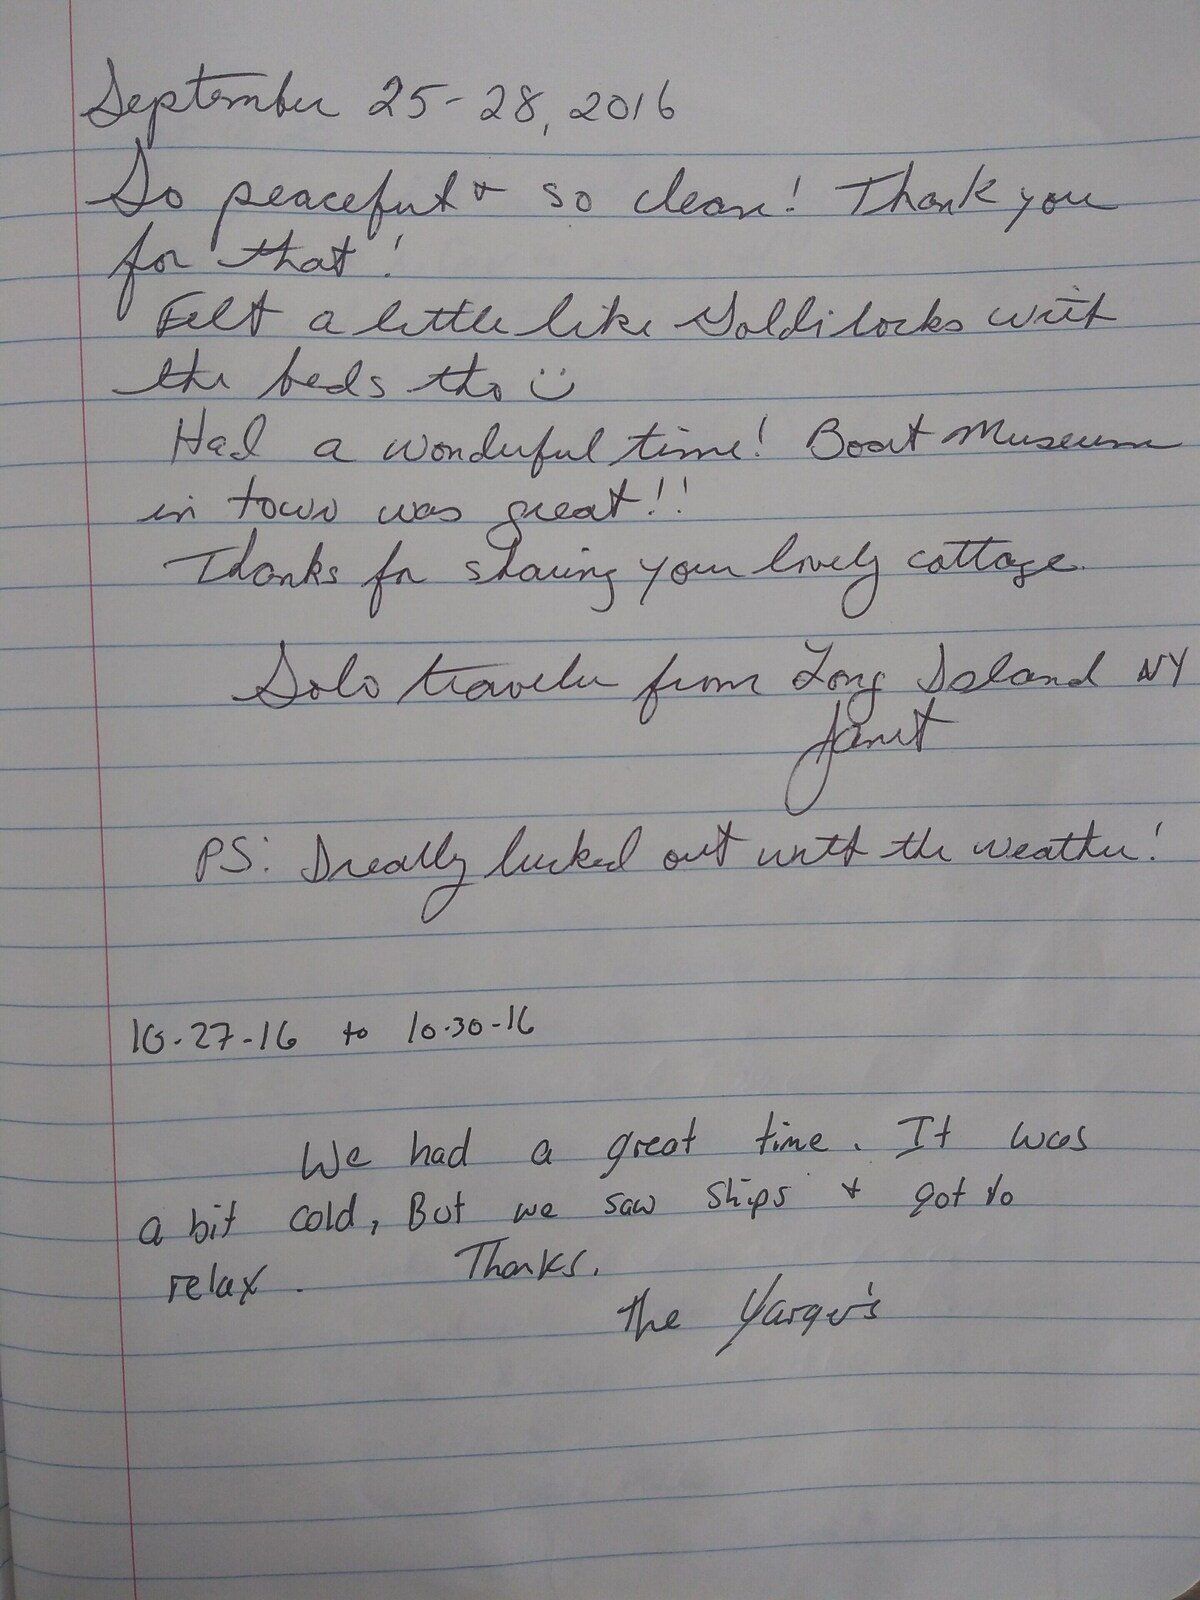 September 25-28, 2016
So peaceful & so clean! Thank you
for that!
Felt a little like Goldilocks with
the beds tho ☺
Had a wonderful time! Boat Museum
in town was great!!
Thanks for sharing your lovely cottage.
Solo traveler from Long Island NY
Janet
PS: I really lucked out with the weather!
10-27-16 to 10-30-16
We had a great time. It was
a bit cold, But we saw ships & got to
relax. Thanks.
The